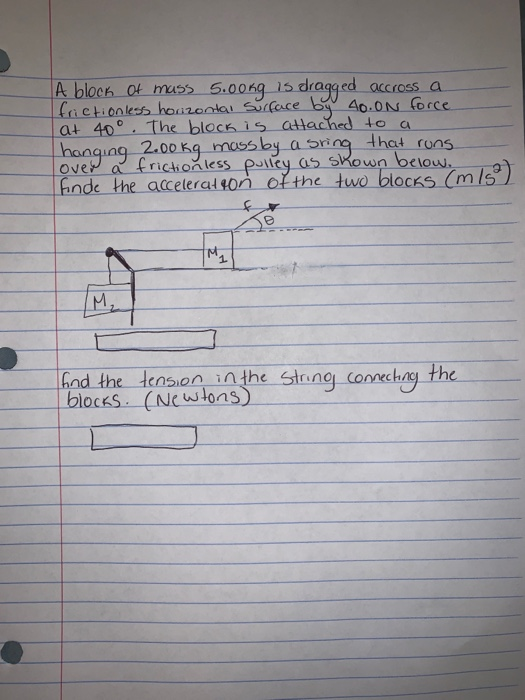 A block of mass 5.00kg is dragged accross a
frictionless horizontal surface by 40.0N force
at 40°. The block is attached to a
hanging 2.00kg mass by a sring that runs
over a frictionless pulley as shown below.
finde the acceleration of the two blocks (m/s²)
F
θ
M1
M2
find the tension in the string connecting the
blocks. (Newtons)